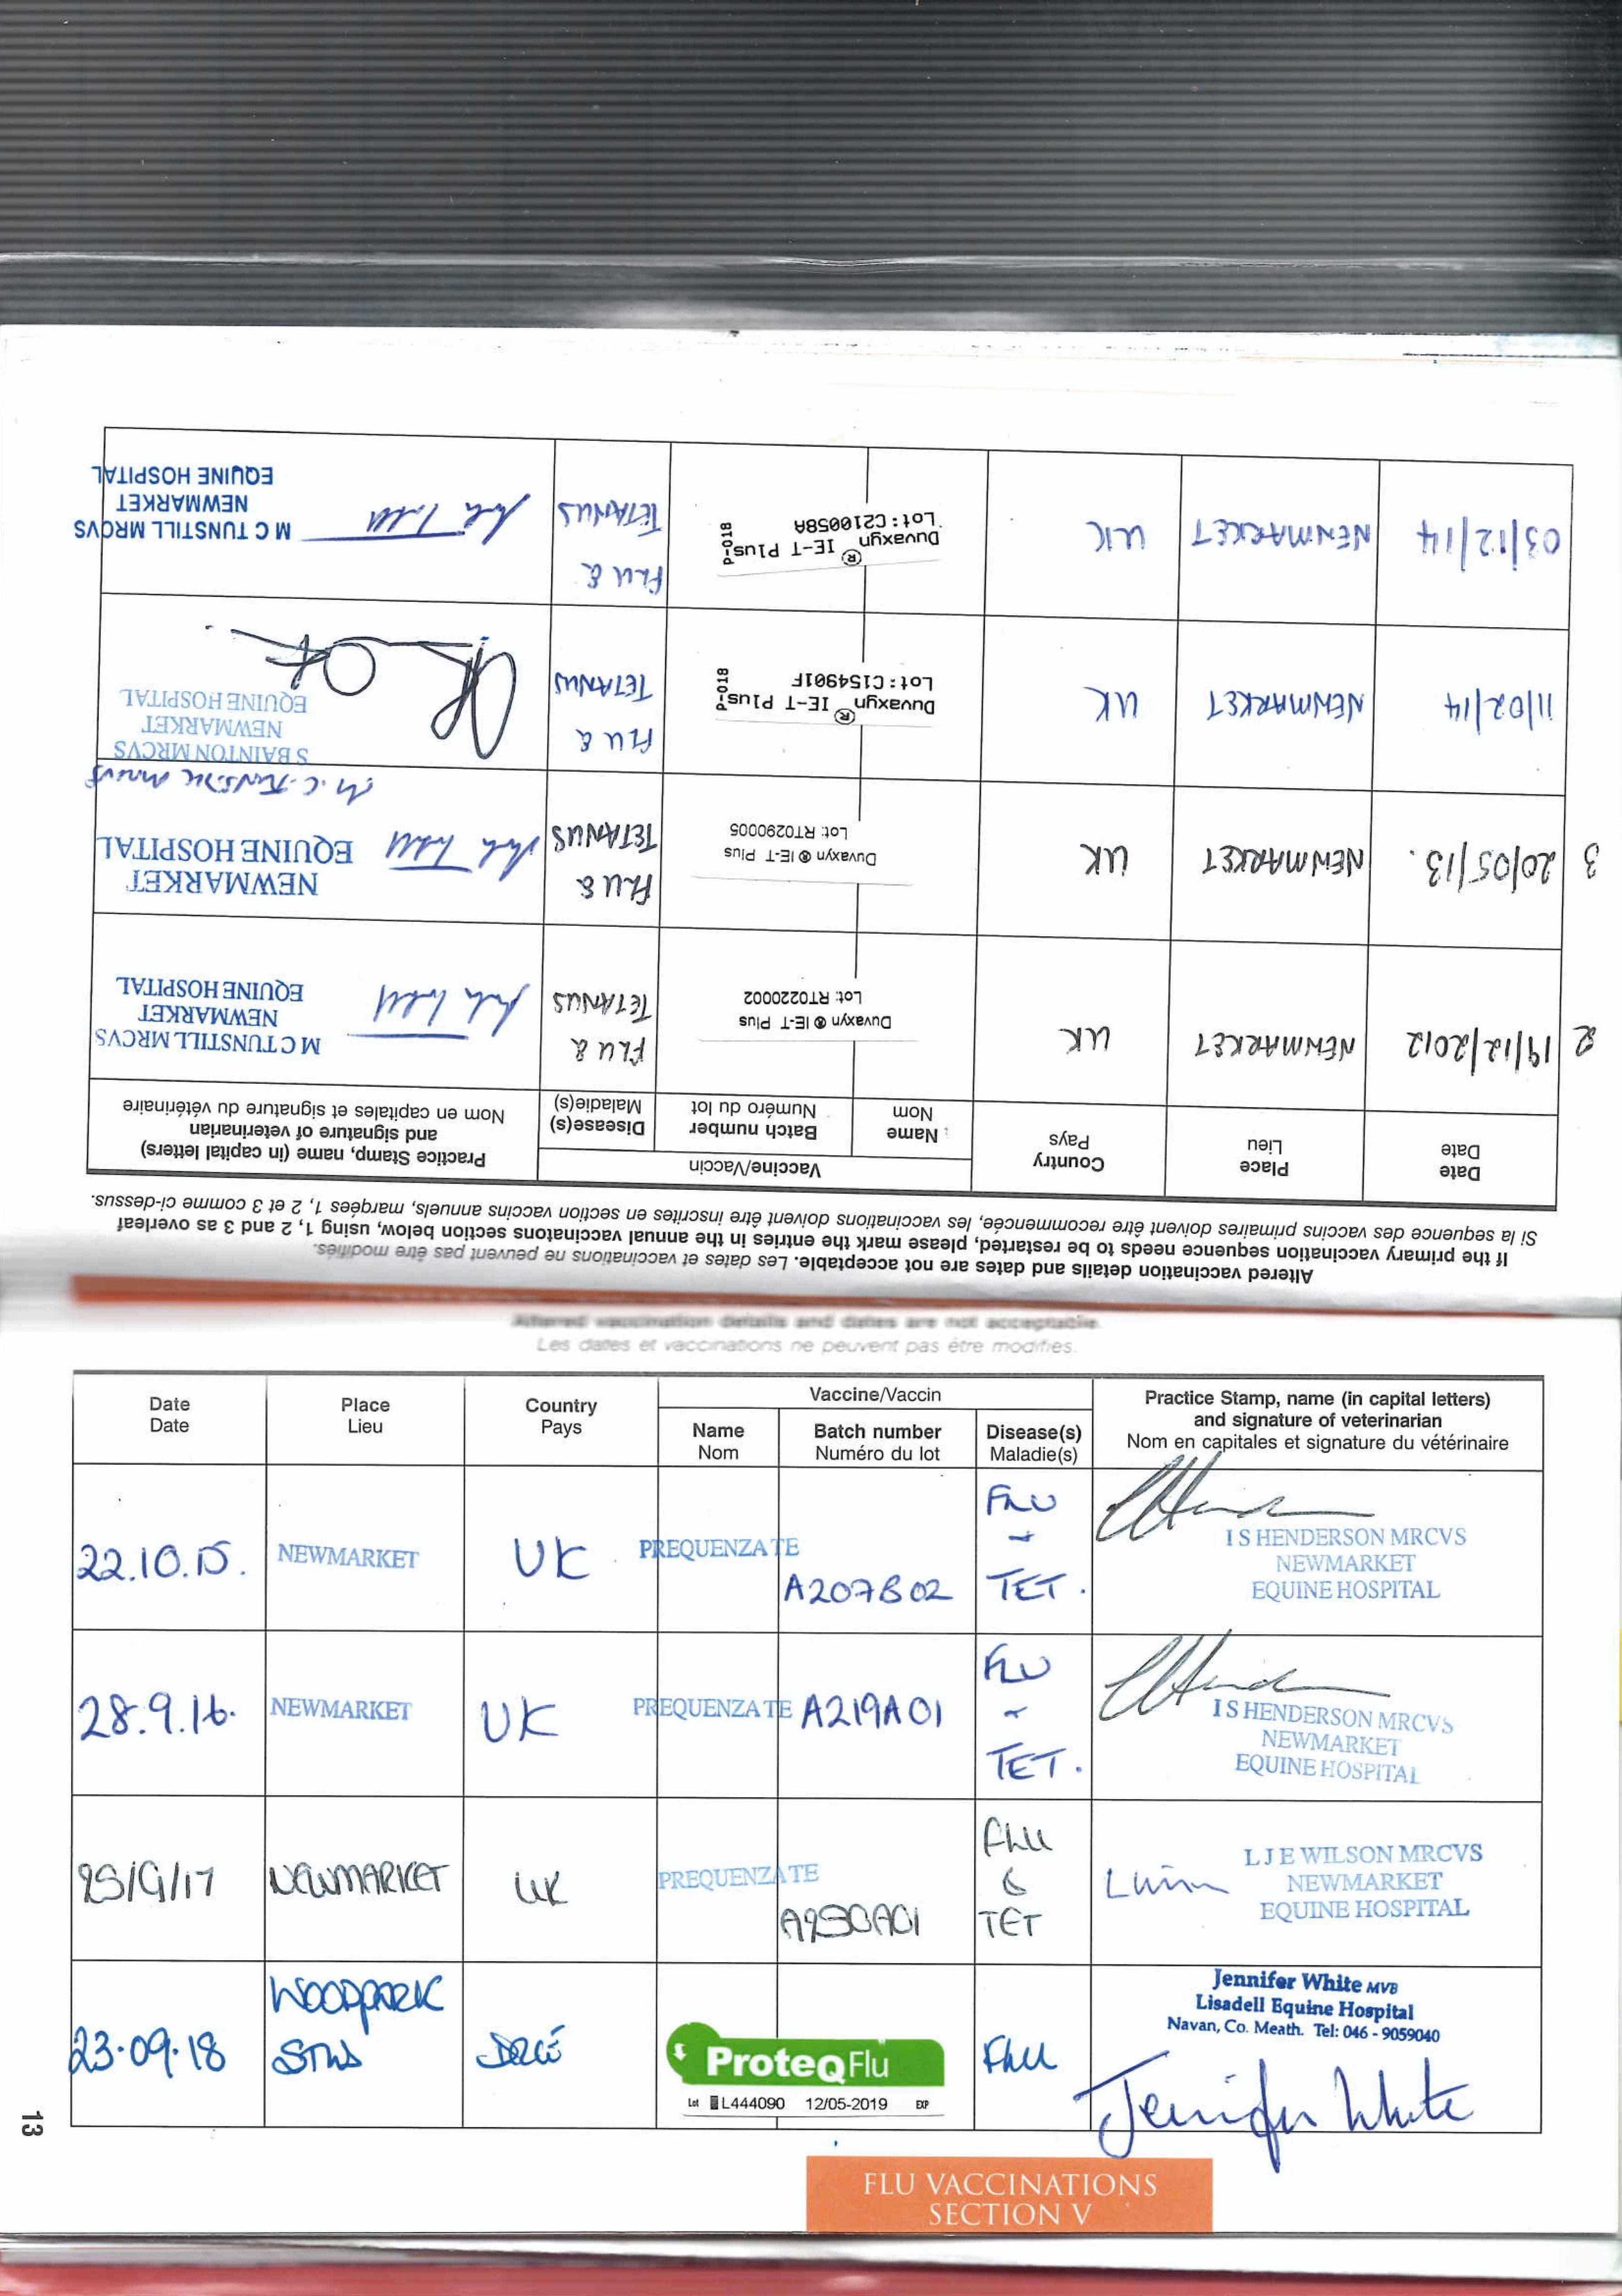 Altered vaccination details and dates are not acceptable. Les dates et vaccinations ne peuvent pas être modifiées.
If the primary vaccination sequence needs to be restarted, please mark the entries in the annual vaccinations section below, using 1, 2 and 3 as overleaf
Si la sequence des vaccins primaires doivent être recommencée, les vaccinations doivent être inscrites en section vaccins annuels, marqées 1, 2 et 3 comme ci-dessus.
Date
Date
Place
Lieu
Country
Pays
Vaccine/Vaccin
Name
Nom
Batch number
Numéro du lot
Disease(s)
Maladie(s)
Practice Stamp, name (in capital letters)
and signature of veterinarian
Nom en capitales et signature du vétérinaire
2
19/12/2012
NEWMARKET
UK
Duvaxyn ® IE-T Plus
Lot: RT0220002
FLU &
TETANUS
M C TUNSTILL MRCVS
NEWMARKET
EQUINE HOSPITAL
3
20/05/13.
NEWMARKET
UK
Duvaxyn ® IE-T Plus
Lot: RT0290005
FLU &
TETANUS
NEWMARKET
EQUINE HOSPITAL
M.C. TUNSTILL MRCVS
11/02/14
NEWMARKET
UK
Duvaxyn ® IE-T Plus
Lot: C154901F
P-018
FLU &
TETANUS
S BAINTON MRCVS
NEWMARKET
EQUINE HOSPITAL
03/12/14
NEWMARKET
UK
Duvaxyn ® IE-T Plus
Lot: C210058A
P-018
FLU &
TETANUS
M C TUNSTILL MRCVS
NEWMARKET
EQUINE HOSPITAL
Altered vaccination details and dates are not acceptable.
Les dates et vaccinations ne peuvent pas être modifies.
Date
Date
Place
Lieu
Country
Pays
Vaccine/Vaccin
Name
Nom
Batch number
Numéro du lot
Disease(s)
Maladie(s)
Practice Stamp, name (in capital letters)
and signature of veterinarian
Nom en capitales et signature du vétérinaire
22.10.15.
NEWMARKET
UK
PREQUENZA TE
A207B02
FLU
+
TET.
I S HENDERSON MRCVS
NEWMARKET
EQUINE HOSPITAL
28.9.16.
NEWMARKET
UK
PREQUENZA TE
A219A01
FLU
+
TET.
I S HENDERSON MRCVS
NEWMARKET
EQUINE HOSPITAL
25/9/17
NEWMARKET
UK
PREQUENZA TE
FLU
&
TET
L J E WILSON MRCVS
NEWMARKET
EQUINE HOSPITAL
23.09.18
WOODPARK
STUD
ProteqFlu
Lot L444090 12/05-2019 EXP
FLU
Jennifer White MVB
Lisadell Equine Hospital
Navan, Co. Meath. Tel: 046 - 9059040
Jennifer White
13
FLU VACCINATIONS
SECTION V